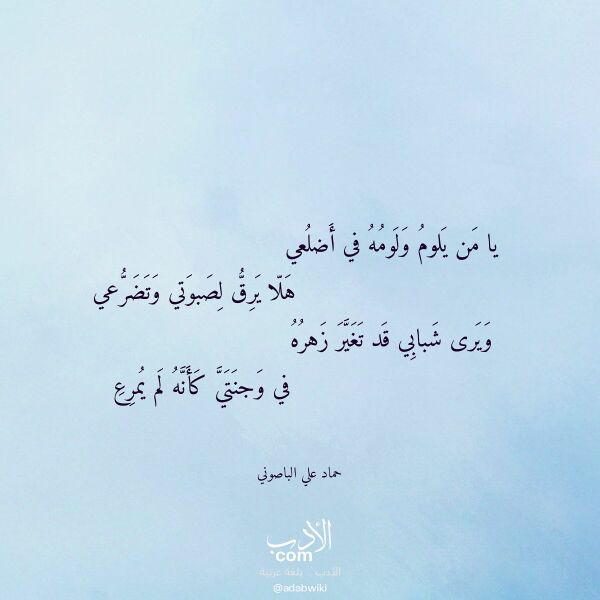 يا مَن يَلومُ وَلَومُهُ في أَضلُعي
هَلّا يَرِقُّ لِصَبوَتي وَتَضَرُّعي
وَيَرى شَبابِي قَد تَغَيَّرَ زَهرُهُ
في وَجنَتَيَّ كَأَنَّهُ لَم يُمرِعِ
حماد علي الباصوني
الأدب
com
الأدب .. بلغة عربية
@adabwiki